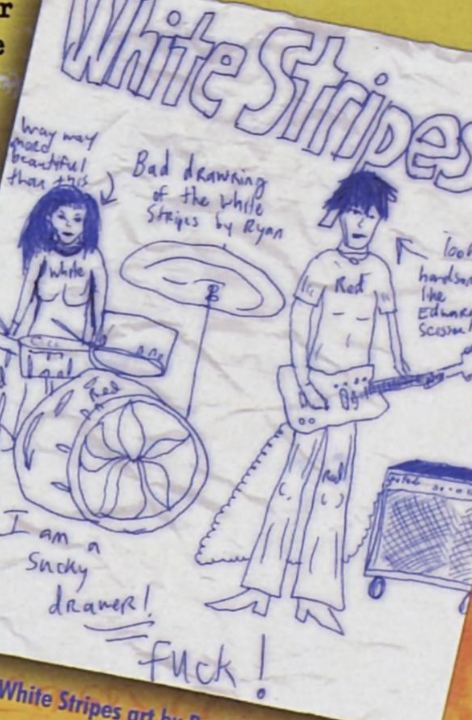 r
e
White Stripes
Way way
more
beautiful
than this
Bad drawring
of the White
Stripes by Ryan
Look
handso
like
Edwar
Scissor
White
Red
Red
Red
I am a
Sucky
drawer!
Fuck!
White Stripes art by R